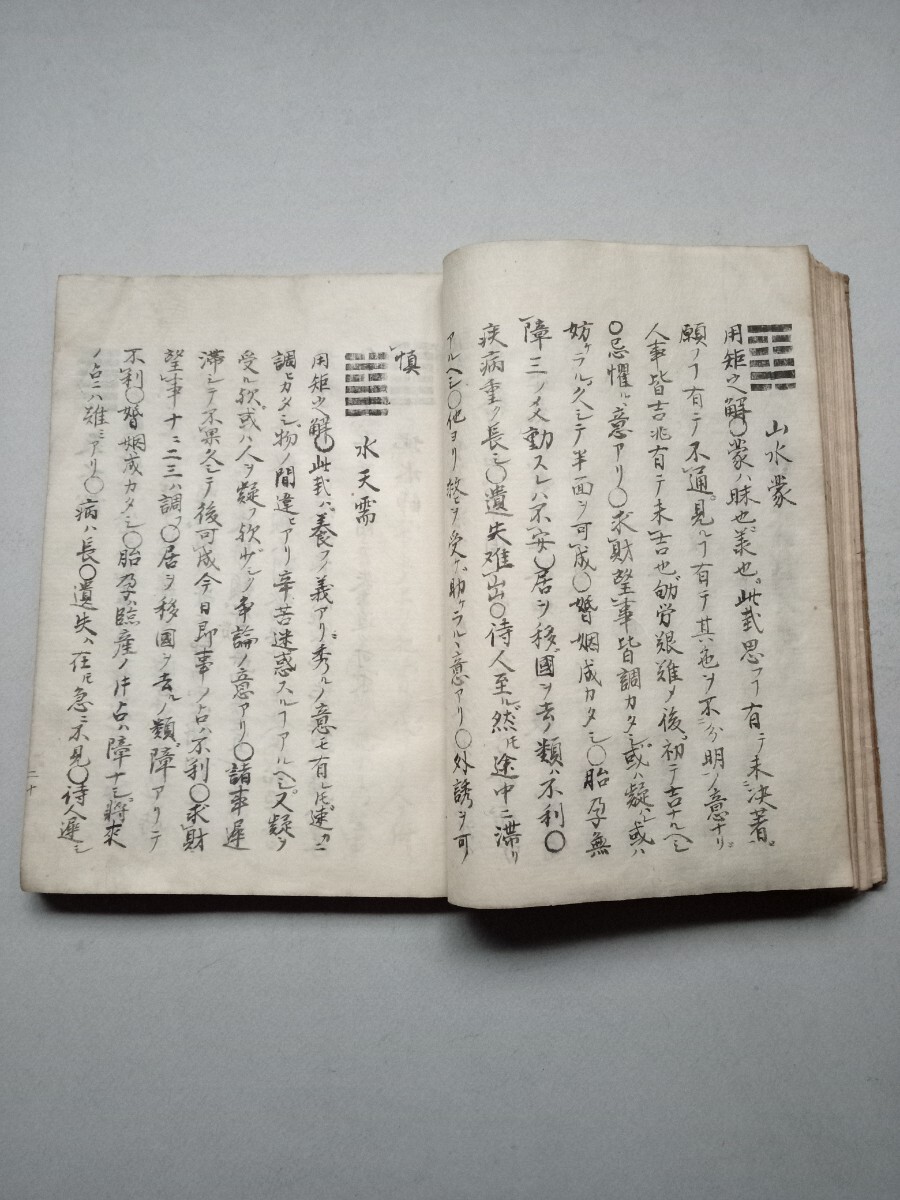 山水蒙
用矩之解〇蒙ハ昧也蒙也。此卦思フヿ有テ未決著。
願フヿ有テ不通。見ルヿ有テ其色ヲ不分明ノ意ナリ
人事皆吉兆有テ未吉也劬労艱難メ後。初テ吉ナルヘシ
〇忌懼ルヽ意アリ〇求財望事皆調カタシ或ハ疑ハレ或ハ
妨ケラル久シテ半面ヲ可成〇婚姻成カタシ〇胎孕無
障三ノ爻動スレハ不安〇居ヲ移國ヲ去ノ類ハ不利〇
疾病重ク長シ〇遺失难出〇待人至ル然トモ途中ニ滞リ
アルヘシ〇他ヨリ 受ケ助ケラルヽ意アリ〇外誘ヲ可
慎
水天需
用矩之解〇此卦ハ養フノ義アリ秀ルノ意モ有レトモ速カニ
調ヒカタシ物ノ間違ヒアリ辛苦迷惑スルヿアルヘシ又疑ヲ
受ル欤或ハ人ヲ疑フ欤少シノ争論ノ意アリ〇諸事遅
滞シテ不果久シテ後可成今日即事ノ占ハ不利〇求財
望事十ニ二三ハ調フ〇居ヲ移國ヲ去ルノ類障アリテ
不利〇婚姻成カタシ〇胎孕ハ臨産ノ時占ハ障ナシ將來
ノ占ニハ難アリ〇病ハ長〇遺失ハ在トモ急ニ不見〇待人遲シ
二十